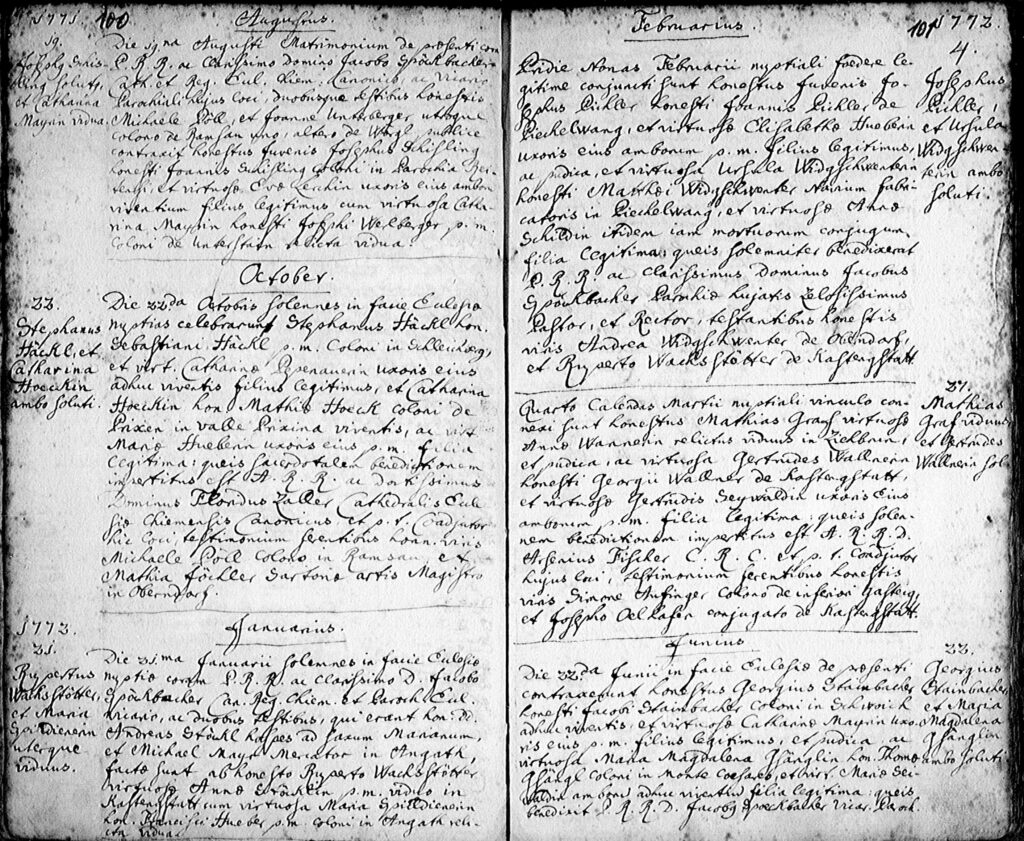 1771. 100 Augustus.
19.
Josephus Schis-
ling solutus,
et Catharina
Mayrin vidua.
Die 19.na Augusti Matrimonium de præsenti coram
P. R. R. ac Clarissimo Domino Jacobo Spöckbacher
Cath. et Reg. Eccl. Chiem. Canonico, ac Vicario
Parochiali hujus loci, duobusque testibus honestis
Michaele Pöll, et Joanne Unterberger utroque
colono de Ramsau uno, altero de Wörgl publice
contraxit honestus Juvenis Josephus Schisling
honesti Joannis Schisling coloni in Parochia
et virtuosæ Evæ Lerchin uxoris eius ambor.
viventium filius legitimus cum virtuosa Catha-
rina Mayrin honesti Josephi Welberger p. m.
coloni de Unterstain relicta vidua.
October.
22.
Stephanus
Häckl, et
Catharina
Hoeckin
ambo soluti.
Die 22.da Octobris solennes in facie Ecclesiæ
nuptias celebrarunt Stephanus Häckl hon.
Sebastiani Häckl p. m. coloni in
et virt. Catharinæ uxoris eius
adhuc viventis filius legitimus, et Catharina
Hoeckin hon. Mathiæ Hoeck coloni de
Brixen in valle Brixina viventis, ac virt.
Mariæ Hueberin uxoris eius p. m. filia
legitima: queis sacerdotalem benedictionem
impertitus est A. R. R. ac Doctissimus
Dominus Floridus Zaller Cathedralis Eccle-
siæ Chiemensis Canonicus et p. t. Coadjutor
hic loci, testimonium ferentibus honn. viris
Michaele Pöll colono in Ramsau et
Mathia Föchler Sartoriæ artis Magistro
in Oberndorf.
1772. Januarius.
21.
Rupertus
Wachstötter,
et Maria
Spildienerin
uterque
viduus.
Die 21.ma Januarii solemnes in facie Ecclesiæ
nuptiæ coram P. R. R. ac Clarissimo D. Jacobo
Spöckbacher Can. Reg. Chiem. et Paroch. Eccl.
Vicario, ac duobus testibus, qui erant hon. DD.
Andreas Stöckl ad saxum Marianum,
et Michael Mayr Mercator in Angath,
factæ sunt ab honesto Ruperto Wachstötter
virtuosæ Annæ p. m. viduo in
Kastengstatt cum virtuosa Maria Spilldienerin
hon. Francisci Hueber p. m. coloni in Angath reli-
cta vidua.
Februarius. 101 1772.
4.
Josephus
Pichler,
et Ursula
Widgschwen-
terin ambo
soluti.
Pridie Nonas Februarii nuptiali foedere le-
gitime conjuncti sunt honestus Juvenis Jo-
sephus Pichler honesti Joannis Pichler de
Piechelwang, et virtuosæ Elisabethæ Hueberin
uxoris eius amborum p. m. filius legitimus,
ac pudica, et virtuosa Ursula Widgschwenterin
honesti Matthei Widgschwenter Navium fabri-
catoris in Piechelwang, et virtuosæ Annæ
Schildin itidem iam mortuorum conjugum
filia legitima: queis solemniter benedixerat
P. R. R. ac Clarissimus Dominus Jacobus
Spöckbacher Parochiæ hujatis Zelosissimus
Pastor, et Rector, testantibus honestis
viris Andrea Widgschwenter de Oberndorf,
et Ruperto Wachstötter de Kastengstatt
27.
Mathias
Graf viduus
et Gertrudes
Wallnerin sol.
Quarto Calendas Martii nuptiali vinculo con-
nexi sunt honestus Mathias Graf virtuosæ
Annæ Wannerin relictus viduus in
et pudica, ac virtuosa Gertrudes Wallnerin
honesti Georgii Wallner de Kastengstatt,
et virtuosæ Gertrudis Seywaldin uxoris Eius
amborum p. m. filia legitima: queis solen-
nem benedictionem impertitus est A. R. R. D.
Arsenius Fischer C. R. C. et p. t. Coadjutor
hujus loci, testimonium ferentibus honestis
viris Simone Aufinger colono de inferiori Gasteig,
et Josepho Oelhafen conjugato de Kastengstatt.
Junius
22.
Georgius
Stainbacher
et Maria
Magdalena
Gsänglin
ambo soluti
Die 22.da Junii in facie Ecclesiæ de præsenti
contraxerunt honestus Georgius Stainbacher
honesti Jacobi Stainbacher coloni in Schwoich
adhuc viventis, et virtuosæ Catharinæ Mayrin uxo-
ris eius p. m. filius legitimus, et pudica, ac
virtuosa Maria Magdalena Gsänglin hon. Thomæ
Gsängl coloni in monte Cæsareo, et virt. Mariæ Sei-
waldin amborum adhuc viventium filia legitima: queis
benedixit P. R. R. D. Jacobus Spoeckbacher Vicar. Paroch.